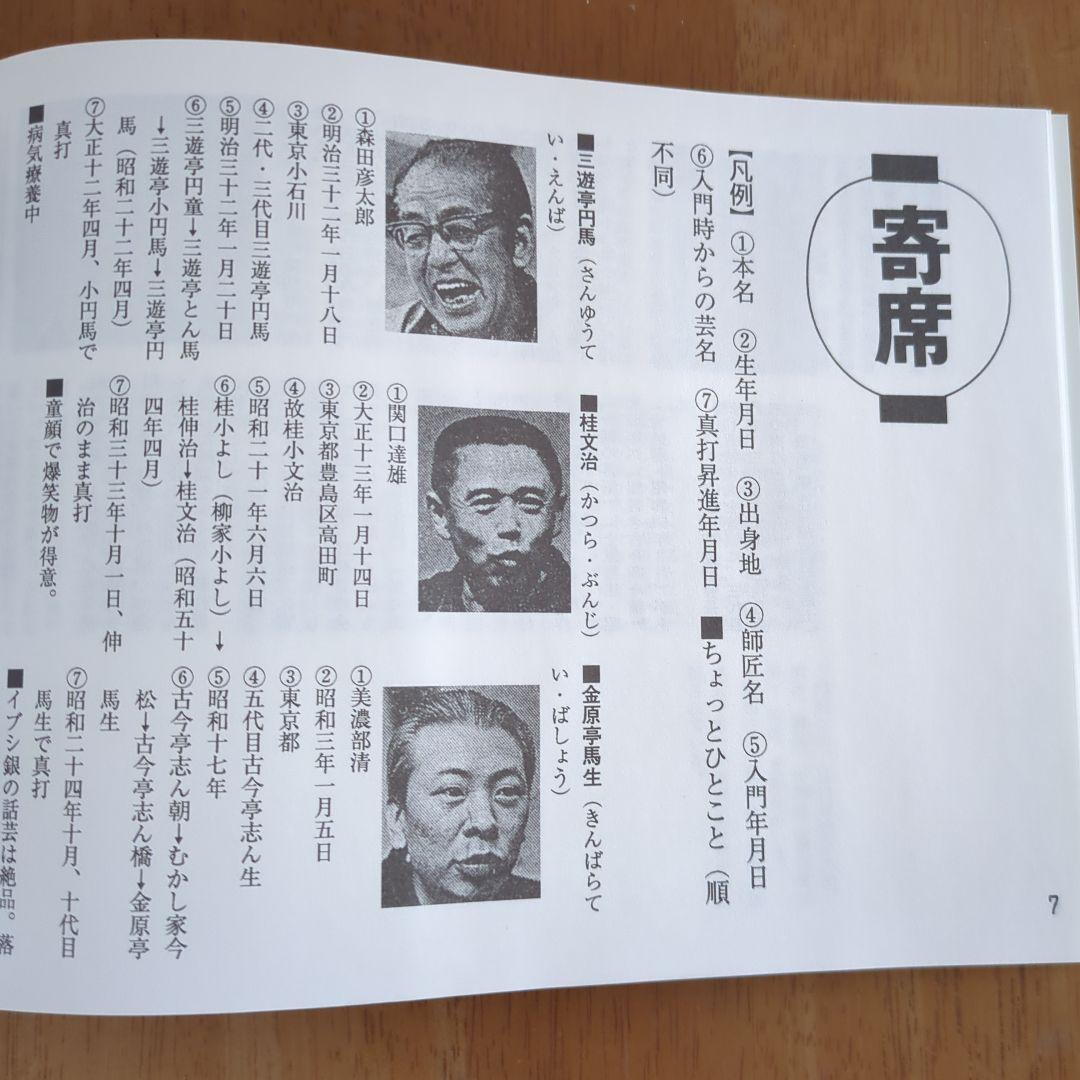 寄席
【凡例】 ①本名 ②生年月日 ③出身地 ④師匠名 ⑤入門年月日
⑥入門時からの芸名 ⑦真打昇進年月日 ■ちょっとひとこと（順
不同）
■三遊亭円馬（さんゆうて
い・えんば）
①森田彦太郎
②明治三十二年一月十八日
③東京小石川
④二代・三代目三遊亭円馬
⑤明治三十二年一月二十日
⑥三遊亭円童→三遊亭とん馬
→三遊亭小円馬→三遊亭円
馬（昭和二十二年四月）
⑦大正十二年四月、小円馬で
真打
■病気療養中
■桂文治（かつら・ぶんじ）
①関口達雄
②大正十三年一月十四日
③東京都豊島区高田町
④故桂小文治
⑤昭和二十一年六月六日
⑥桂小よし（柳家小よし）→
桂伸治→桂文治（昭和五十
四年四月）
⑦昭和三十三年十月一日、伸
治のまま真打
■童顔で爆笑物が得意。
■金原亭馬生（きんばらて
い・ばしょう）
①美濃部清
②昭和三年一月五日
③東京都
④五代目古今亭志ん生
⑤昭和十七年
⑥古今亭志ん朝→むかし家今
松→古今亭志ん橋→金原亭
馬生
⑦昭和二十四年十月、十代目
馬生で真打
■イブシ銀の話芸は絶品。落
7